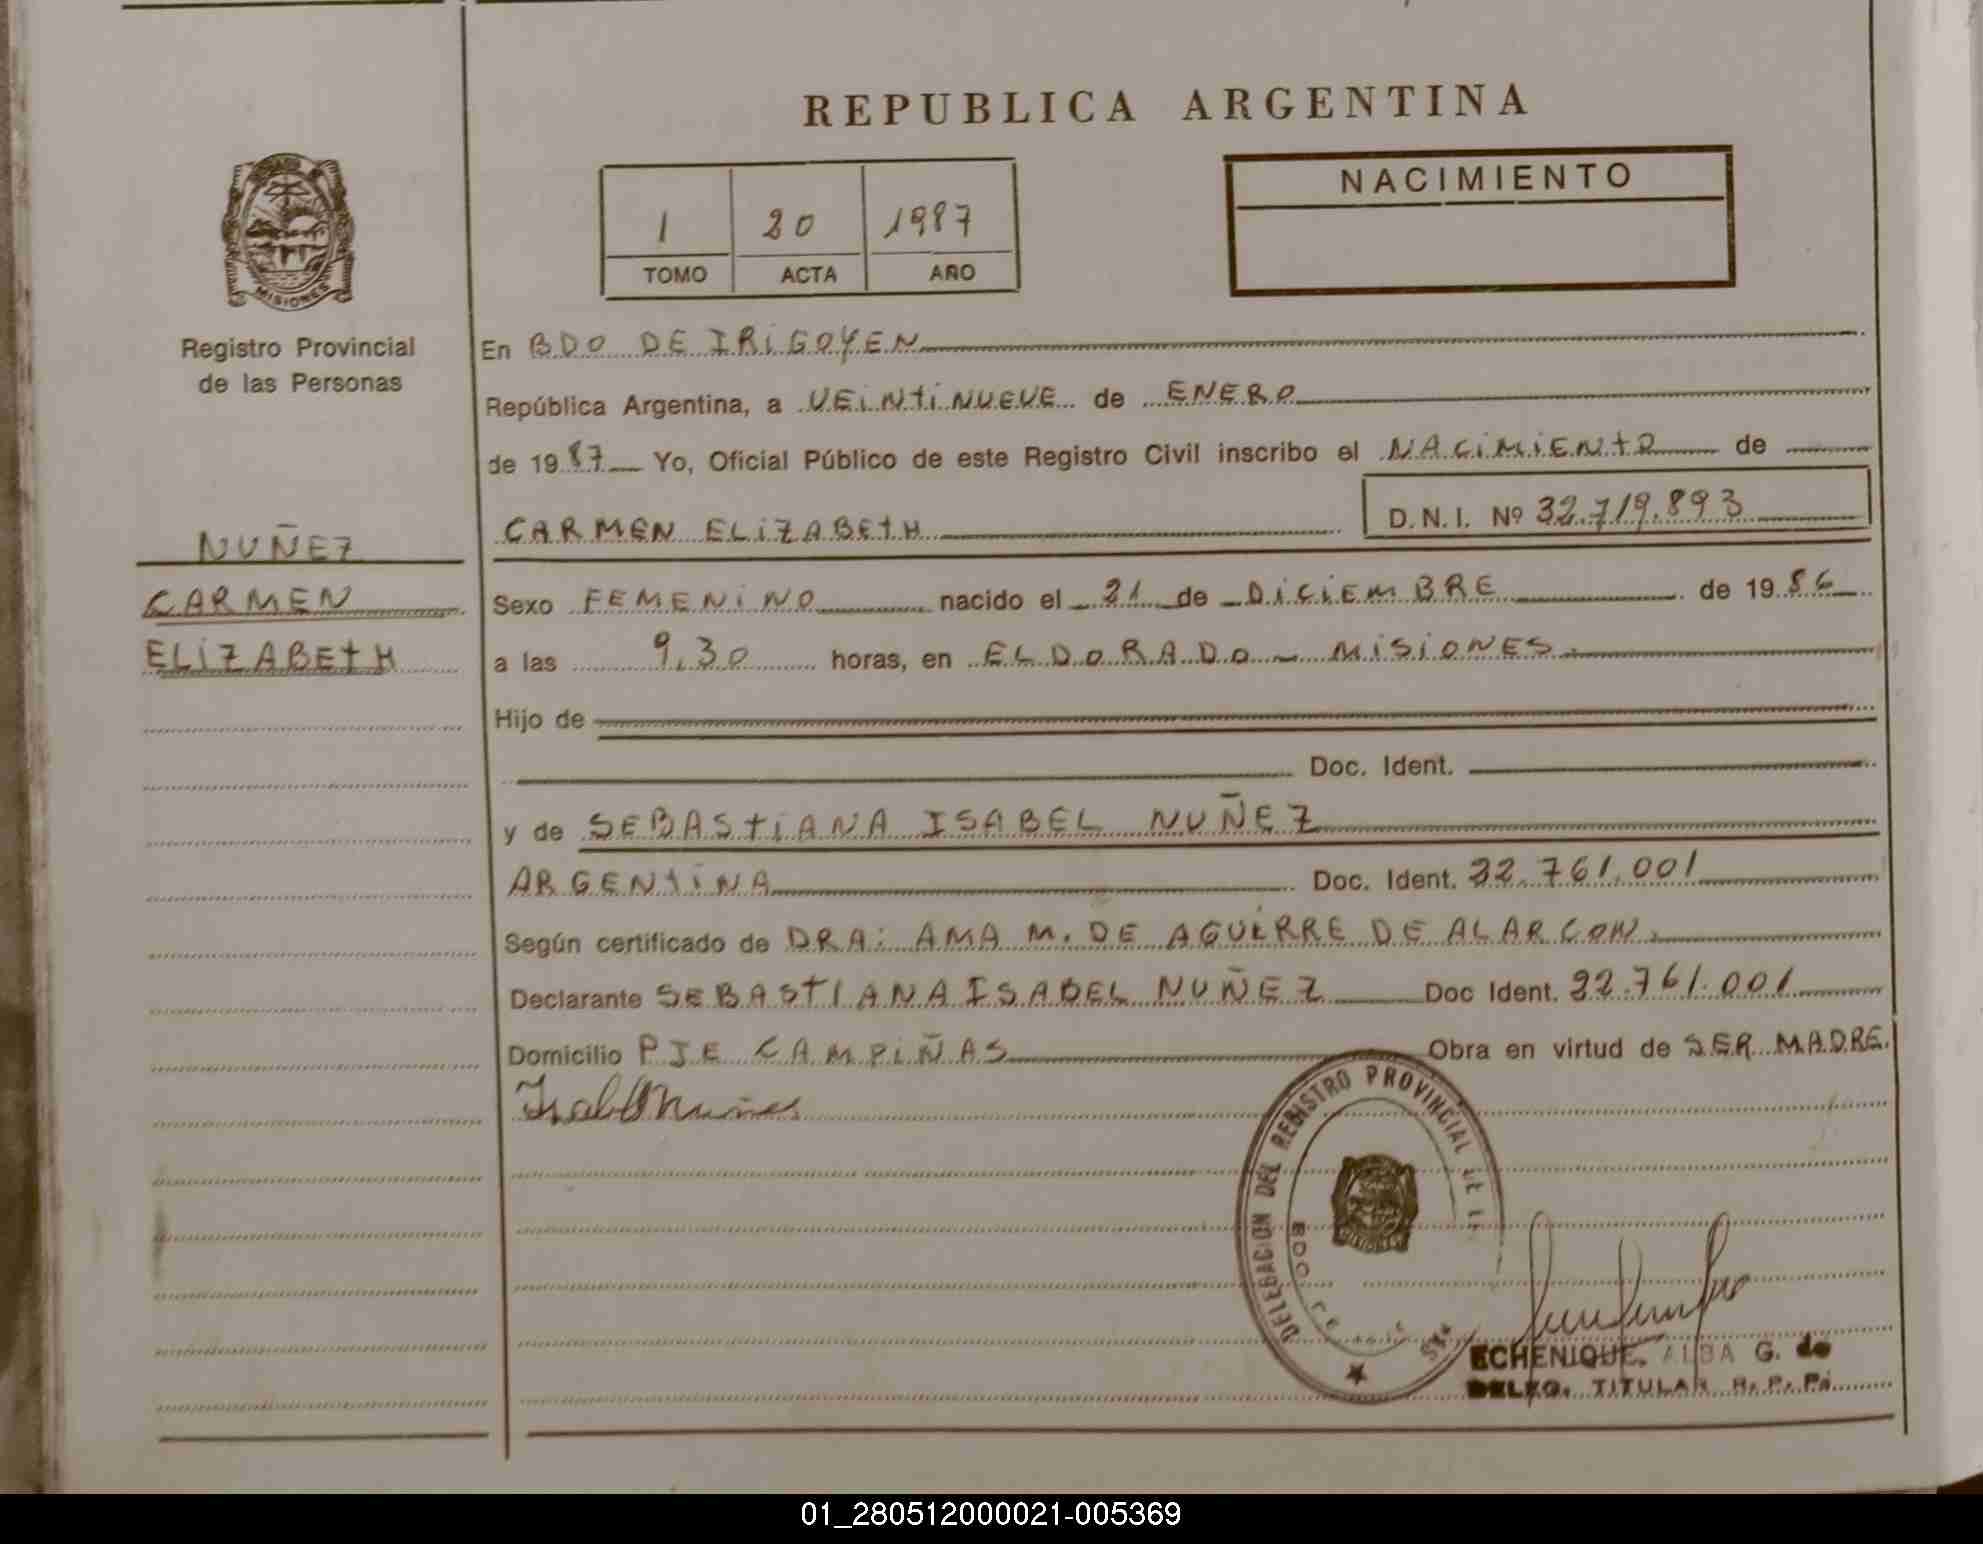 REPUBLICA ARGENTINA
1 20 1987
TOMO ACTA AÑO
NACIMIENTO
MISIONES
Registro Provincial
de las Personas
NUÑEZ
CARMEN
ELIZABETH
En BDO DE IRIGOYEN
República Argentina, a VEINTINUEVE de ENERO
de 1987 Yo, Oficial Público de este Registro Civil inscribo el NACIMIENTO de
CARMEN ELIZABETH D.N.I. Nº 32.719.893
Sexo FEMENINO nacido el 21 de DICIEMBRE de 1986
a las 9,30 horas, en ELDORADO - MISIONES.
Hijo de
Doc. Ident.
y de SEBASTIANA ISABEL NUÑEZ
ARGENTINA Doc. Ident. 22.761.001
Según certificado de DRA: AMA M. DE AGUIRRE DE ALARCON.
Declarante SEBASTIANA ISABEL NUÑEZ Doc Ident. 22.761.001
Domicilio PJE CAMPIÑAS Obra en virtud de SER MADRE.
DELEGACION DEL REGISTRO PROVINCIAL DE
BDO
MISIONES
ECHENIQUE, ALBA G. de
DELEG. TITULAR R. P. P.
01_280512000021-005369